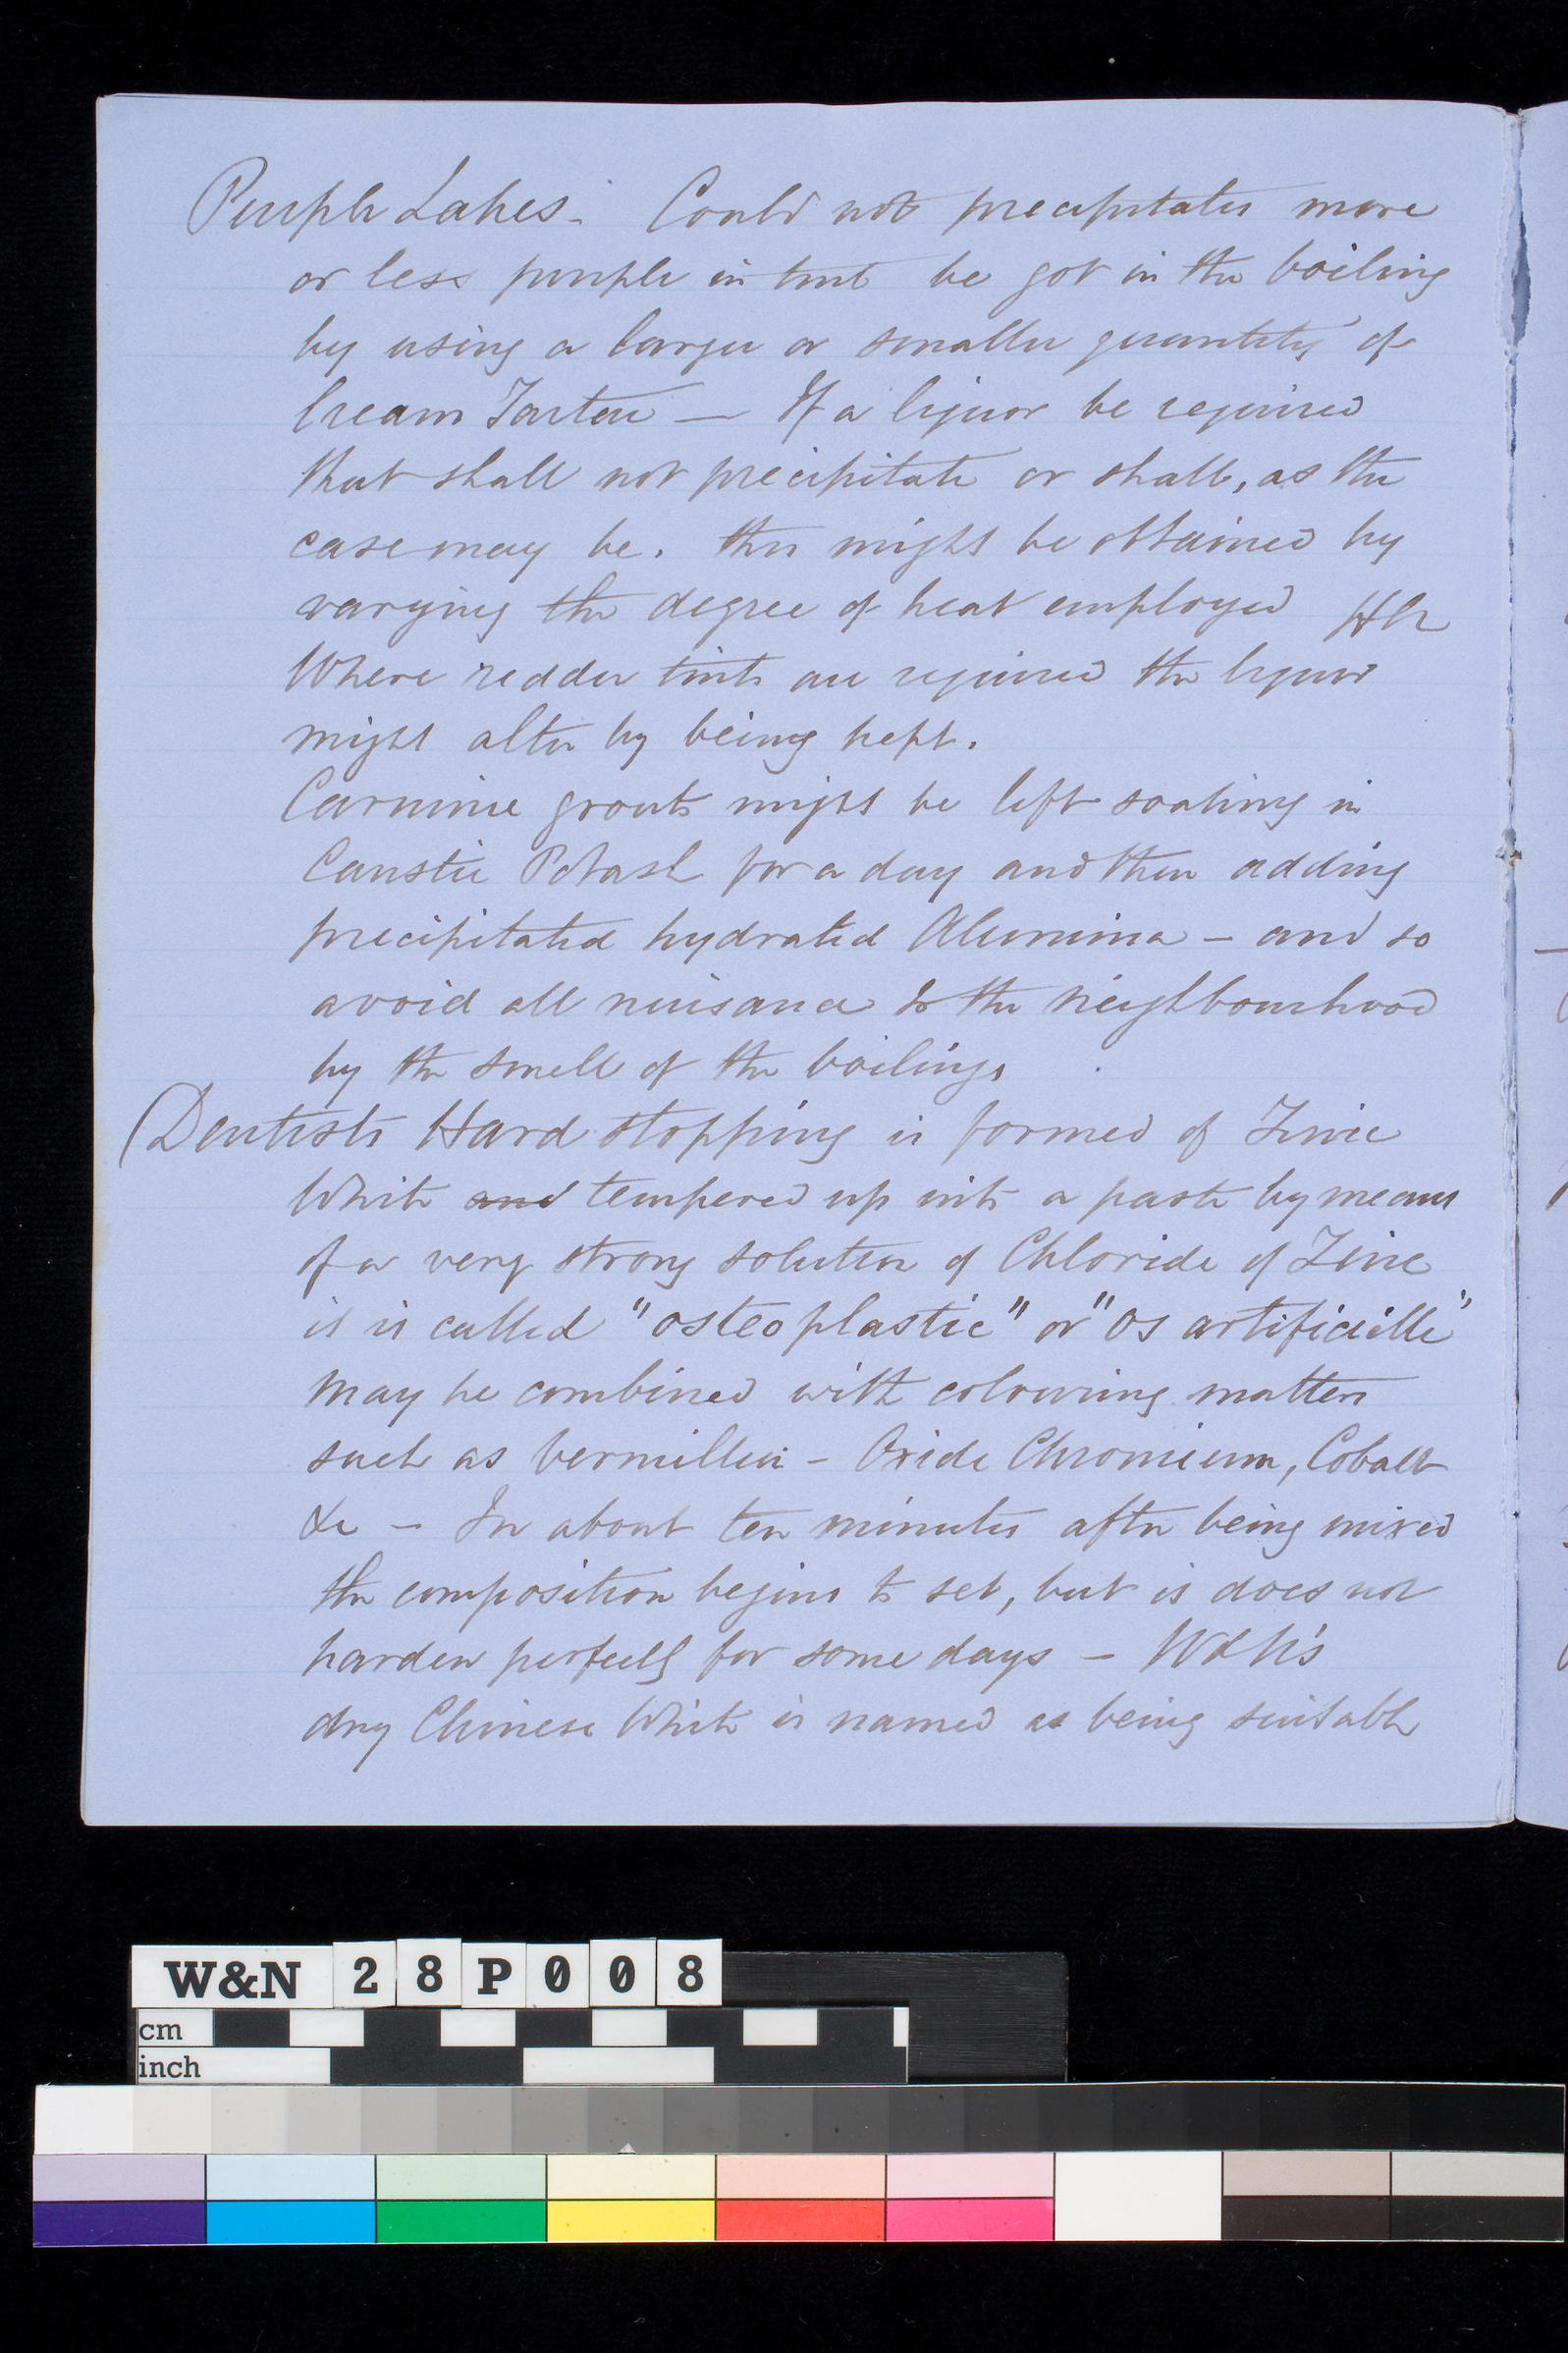 Purple Lakes. Could not precipitates more
or less purple in tint be got in the boiling
by using a larger or smaller quantity of
Cream Tartar — If a liquor be required
that shall not precipitate or shall, as the
case may be. this might be obtained by
varying the degree of heat employed
Where redder tints are required the liquor
might alter by being kept.
Carmine grouts might be left soaking in
Caustic Potash for a day and then adding
precipitated hydrated Alumina – and so
avoid all nuisance to the neighbourhood
by the smell of the boilings
(Dentists Hard stopping is formed of Zinc
White and tempered up into a paste by means
of a very strong solution of Chloride of Zinc
it is called "osteoplastic" or "os artificielle"
may be combined with colouring matters
such as vermillion – Oxide Chromium, Cobalt
&c – In about ten minutes after being mixed
the composition begins to set, but it does not
harden perfectly for some days – W&N's
dry Chinese White is named as being suitable
W&N 28P008
cm
inch